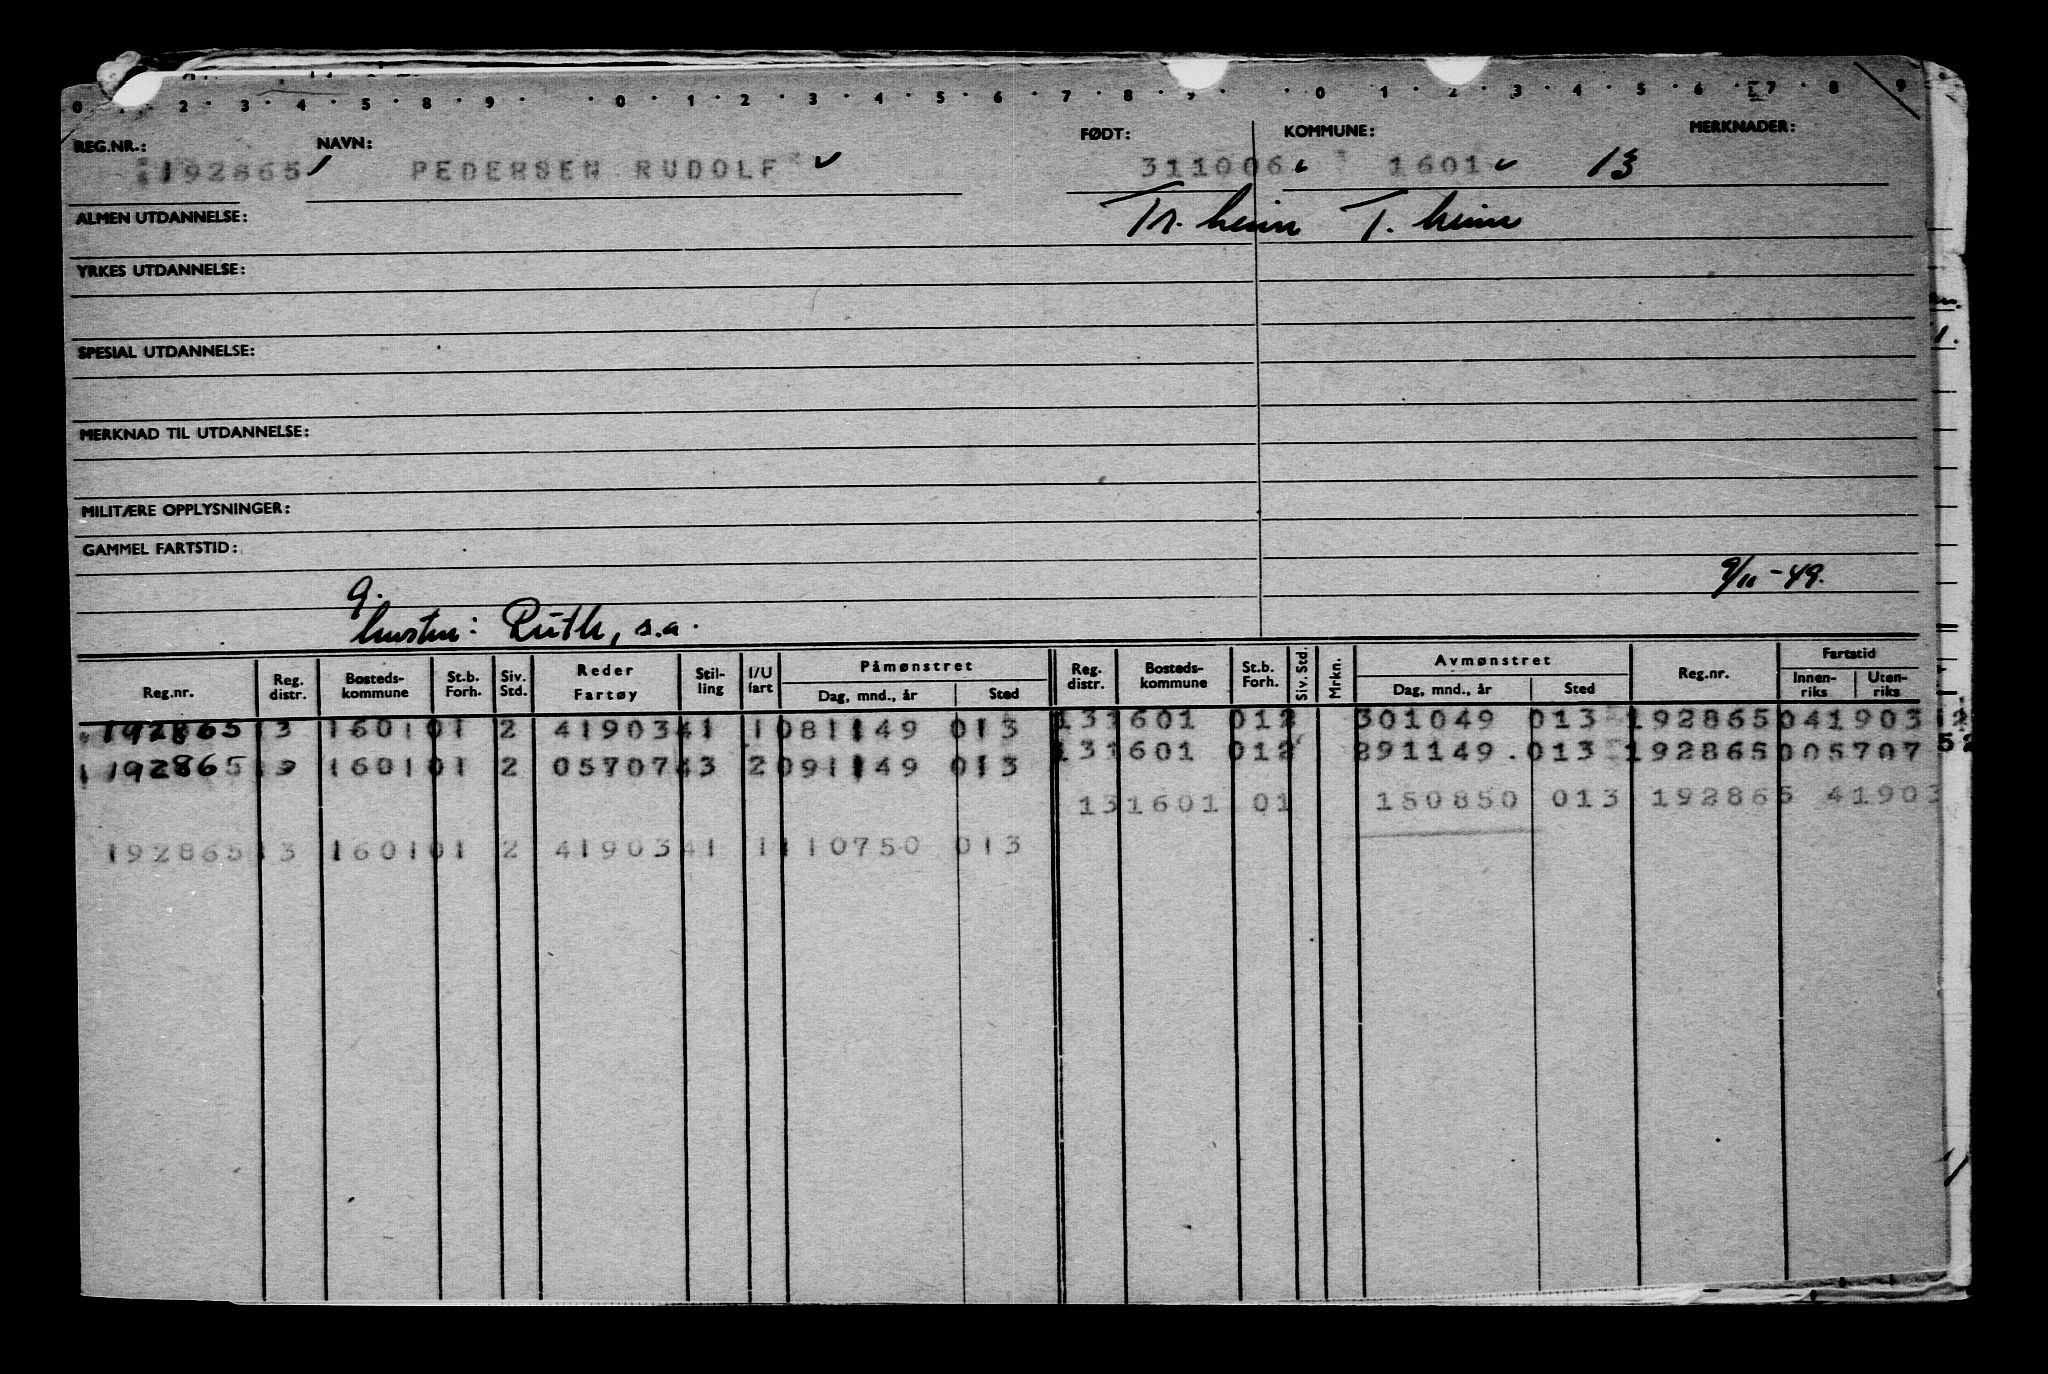 0 . . 2 . 3 . 4 . 5 . 8 . 9 . . 0 . 1 . 2 . 3 . 4 . 5 . 6 . 7 . 8 . 9 . . 0 . 1 . 2 . 3 . 4 . 5 . 6 . 7 . 8 . 9
REG.NR.: NAVN: FØDT: KOMMUNE: MERKNADER:
192865 PEDERSEN RUDOLF 311006 1601 13
ALMEN UTDANNELSE: Tr. heim T. heim
YRKES UTDANNELSE:
SPESIAL UTDANNELSE:
MERKNAD TIL UTDANNELSE:
MILITÆRE OPPLYSNINGER:
GAMMEL FARTSTID:
9/11 - 49.
g.
hustru: Ruth, s.a.
Reg.nr. Reg. distr. Bosteds-kommune St.b. Forh. Siv. Std. Reder Fartøy Stil-ling I/U fart Påmønstret Dag, mnd., år Sted Reg. distr. Bosteds-kommune St.b. Forh. Siv. Std. Mrkn. Avmønstret Dag, mnd., år Sted Reg.nr. Fartstid Innen-riks Uten-riks
192865 13 1601 01 2 41903 41 1 081149 013 13 1601 01 2 301049 013 192865 041903 12
192865 13 1601 01 2 05707 43 2 091149 013 13 1601 01 2 291149 . 013 192865 005707 52
13 1601 01 180850 013 192865 41903
192865 13 1601 01 2 41903 41 1 110750 013